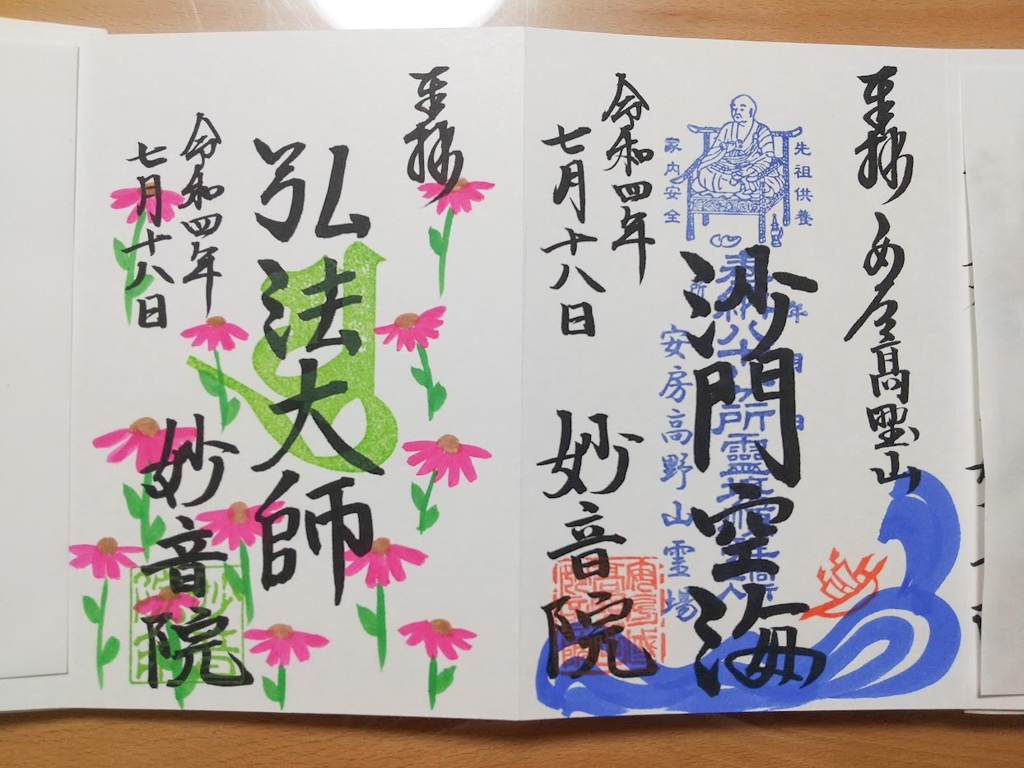 奉拝 安房高野山
先祖供養
家内安全
沙門空海
安房高野山霊場
令和四年
七月十八日
妙音院
奉拝
弘法大師
令和四年
七月十八日
妙音院